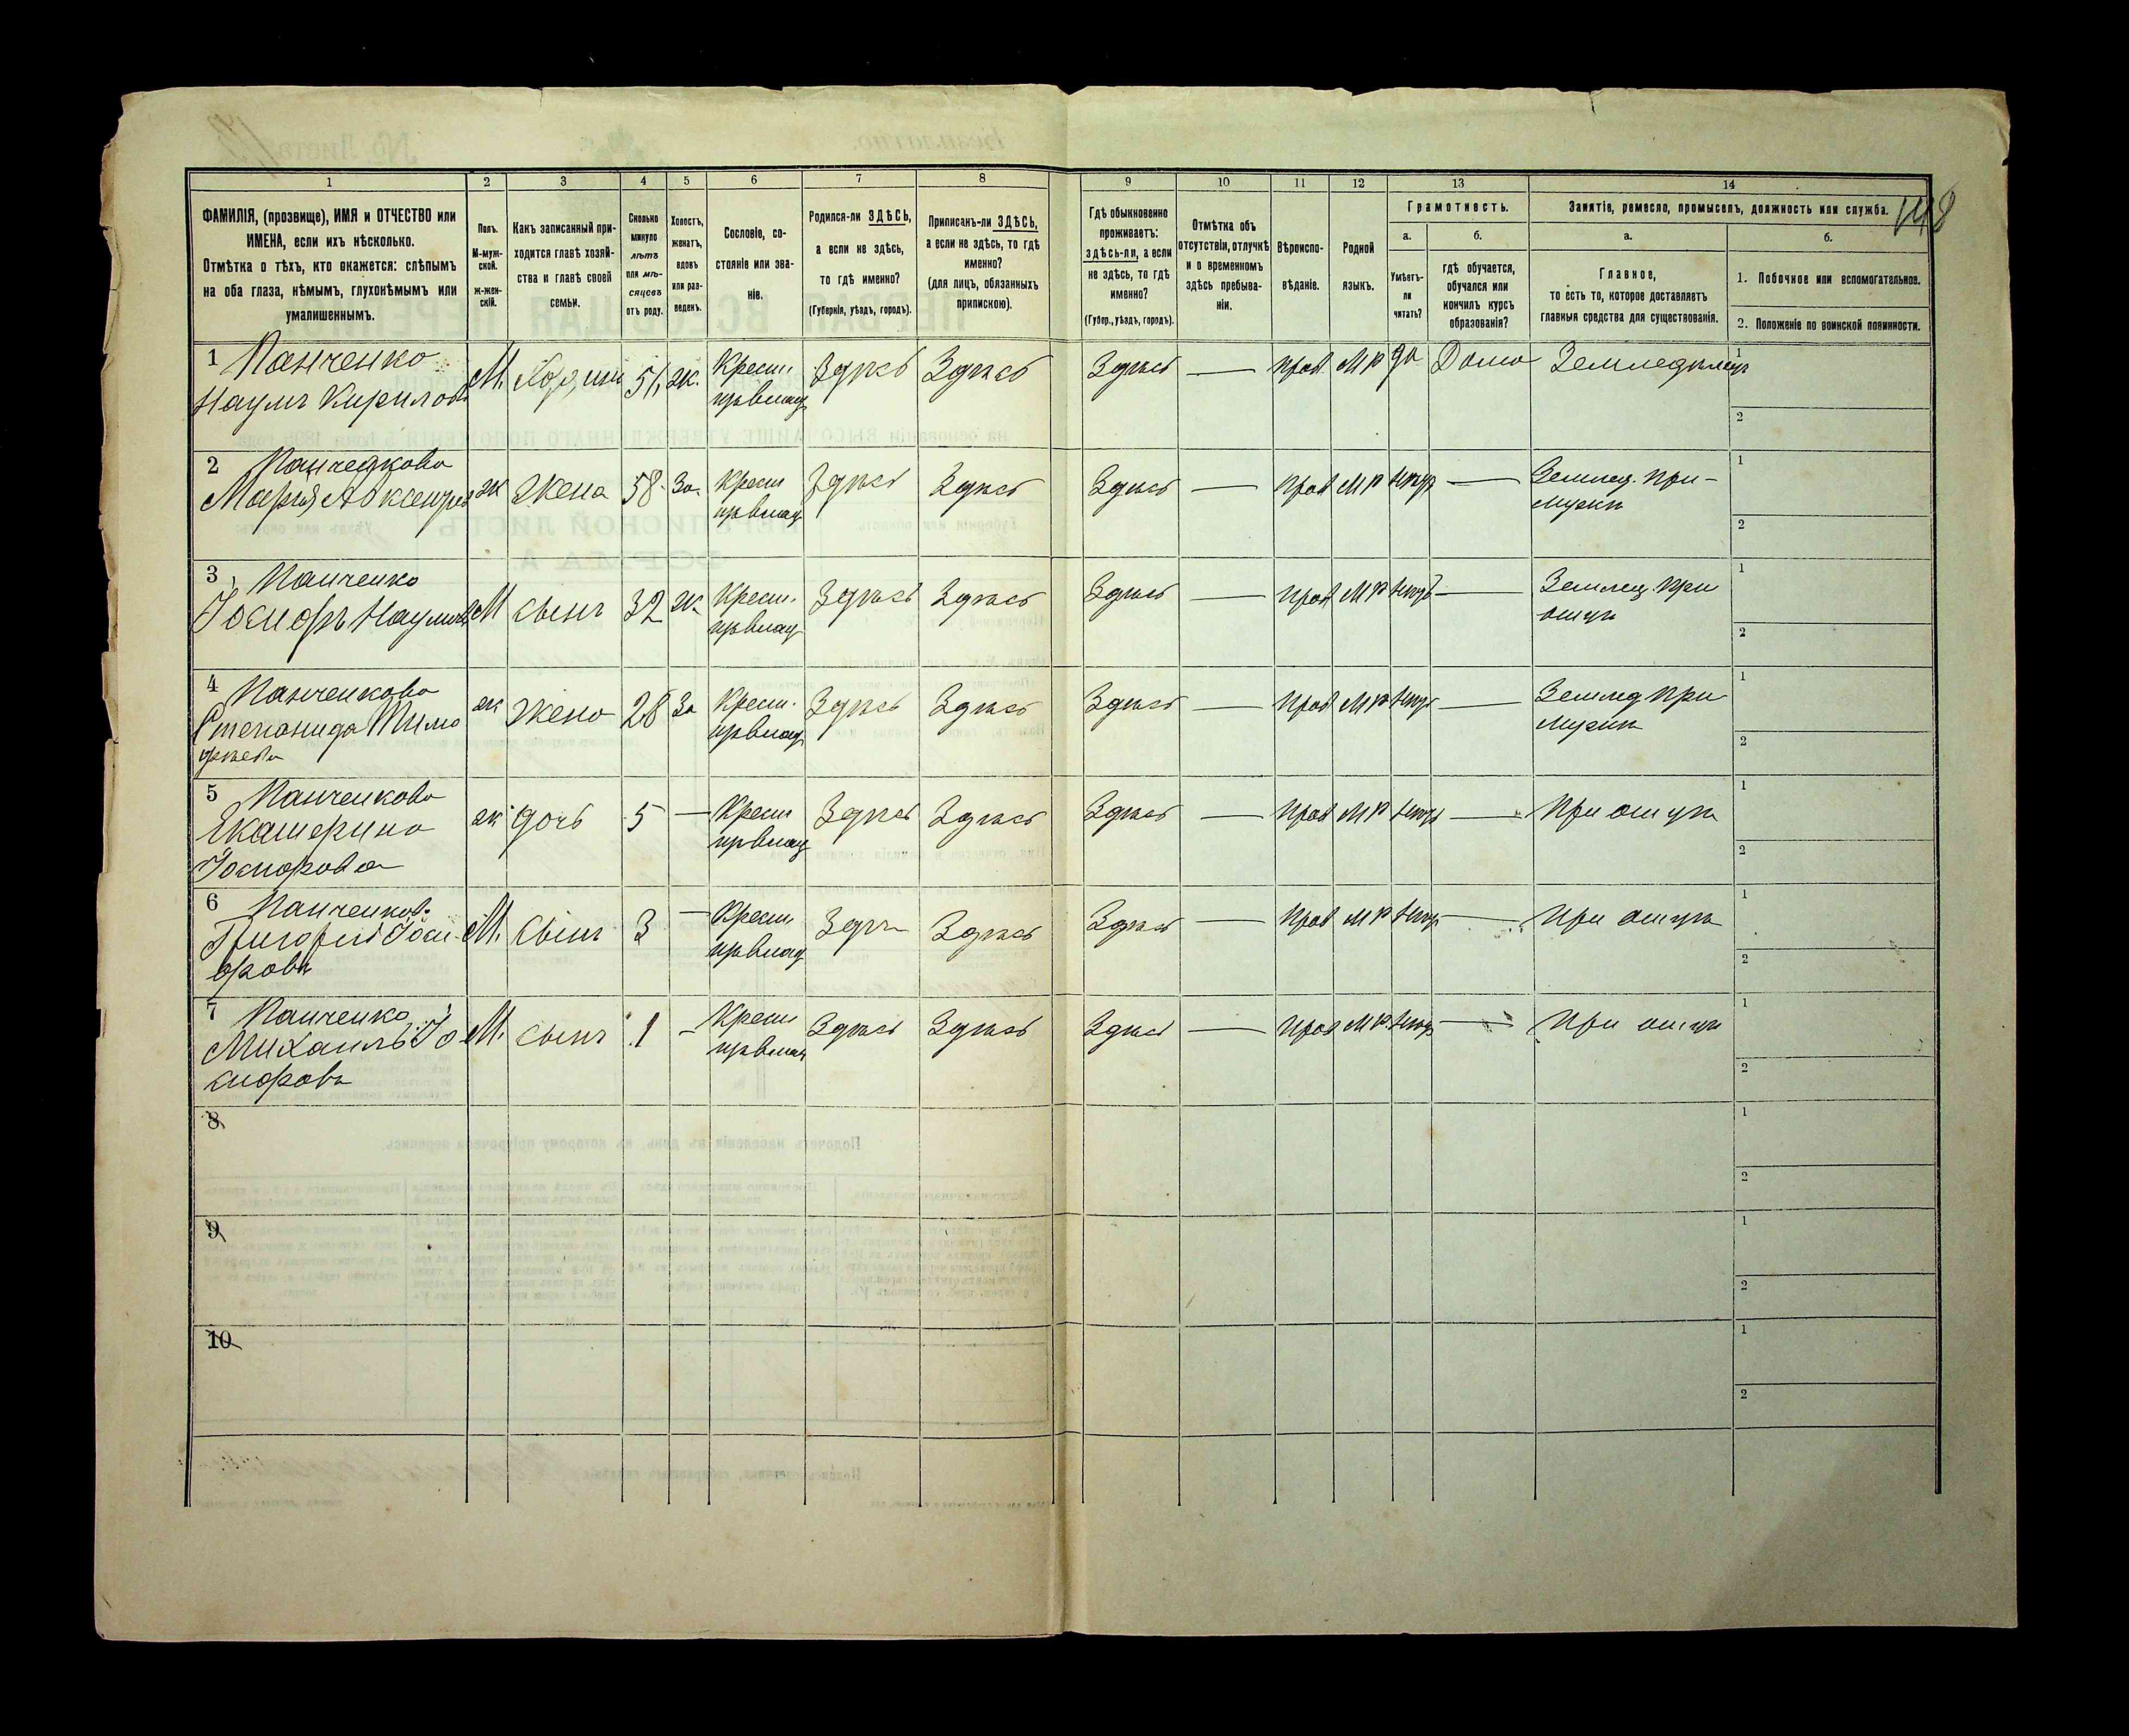 148
1 2 3 4 5 6 7 8 9 10 11 12 13 14
ФАМИЛІЯ, (прозвище), ИМЯ и ОТЧЕСТВО или
ИМЕНА, если ихъ нѣсколько.
Отмѣтка о тѣхъ, кто окажется: слѣпымъ
на оба глаза, нѣмымъ, глухонѣмымъ или
умалишеннымъ.
Полъ.
М-муж-
ской.
ж-жен-
скій.
Какъ записанный при-
ходится главѣ хозяй-
ства и главѣ своей
семьи.
Сколько
минуло
лѣтъ
или мѣ-
сяцевъ
отъ роду.
Холостъ,
женатъ,
вдовъ
или раз-
веденъ.
Сословіе, со-
стояніе или зва-
ніе.
Родился-ли ЗДѢСЬ,
а если не здѣсь,
то гдѣ именно?
(Губернія, уѣздъ, городъ).
Приписанъ-ли ЗДѢСЬ,
а если не здѣсь, то гдѣ
именно?
(для лицъ, обязанныхъ
припискою).
Гдѣ обыкновенно
проживаетъ:
здѣсь-ли, а если
не здѣсь, то гдѣ
именно?
(Губер., уѣздъ, городъ).
Отмѣтка объ
отсутствіи, отлучкѣ
и о временномъ
здѣсь пребыва-
ніи.
Вѣроиспо-
вѣданіе.
Родной
языкъ.
Грамотность.
а.
Умѣетъ-
ли
читать?
б.
гдѣ обучается,
обучался или
кончилъ курсъ
образованія?
Занятіе, ремесло, промыселъ, должность или служба.
а.
Главное,
то есть то, которое доставляетъ
главныя средства для существованія.
б.
1. Побочное или вспомогательное.
2. Положеніе по воинской повинности.
1 Панченко М. Хозяин 51 ж. Крест. Здѣсь Здѣсь Здѣсь — прав М р да Дома Земледѣлецъ 1
Наумъ Кирилов
2
2 Панченкова ж жена 58 За. Крест Здѣсь Здѣсь Здѣсь — прав М р нѣтъ — Землед. при- 1
Марія мужѣ
2
3 Панченко М сынъ 32 ж Крест. Здѣсь Здѣсь Здѣсь — прав М р нѣтъ — Землед. при 1
Іосифъ Наумов отцѣ
2
4 Панченкова ж жена 28 За Крест. Здѣсь Здѣсь Здѣсь — прав М р нѣтъ — Землед при 1
Степанида Тимо мужѣ
фѣева
2
5 Панченкова ж дочь 5 — Крест Здѣсь Здѣсь Здѣсь — прав М р нѣтъ — при отцѣ 1
Екатерина
Іосифова
2
6 Панченков М. сынъ 3 — Крест Здѣсь Здѣсь Здѣсь — прав М р нѣтъ — при отцѣ 1
Григорій Іоси-
фовъ
2
7 Панченко М. сынъ 1 — Крест Здѣсь Здѣсь Здѣсь — прав М р нѣтъ — при отцѣ 1
Михаилъ Іо-
сифовъ
2
8 1
2
9 1
2
10 1
2